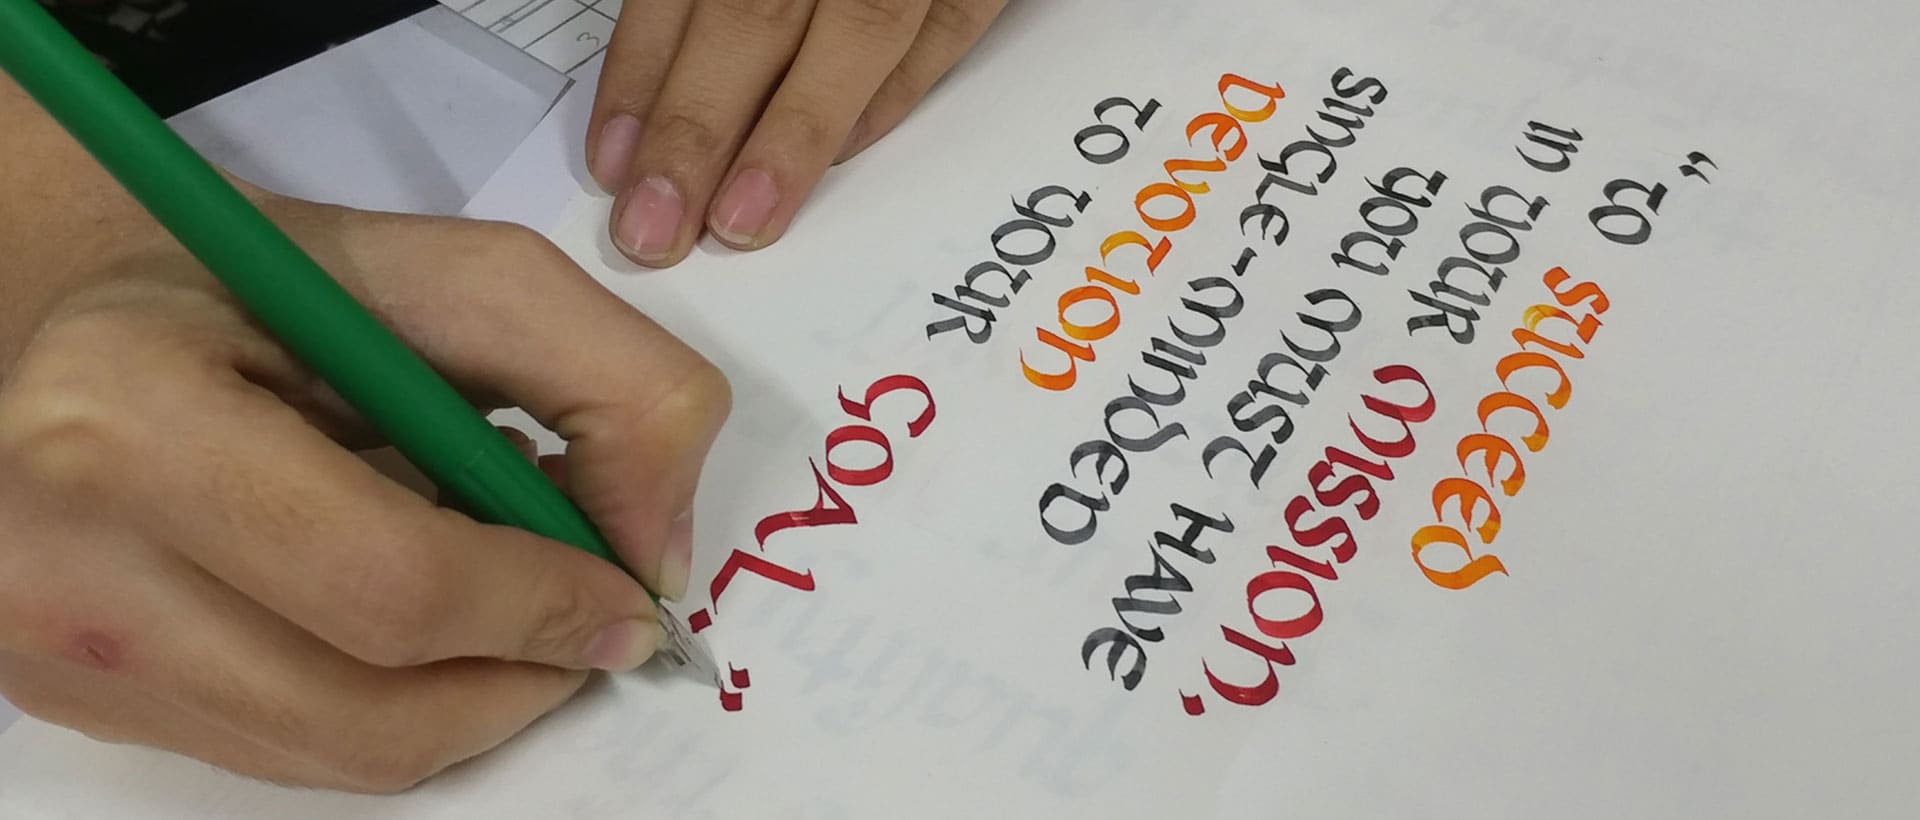 “To succeed
in your mission.
you must have
single-minded
devotion
to your
goal.”
3